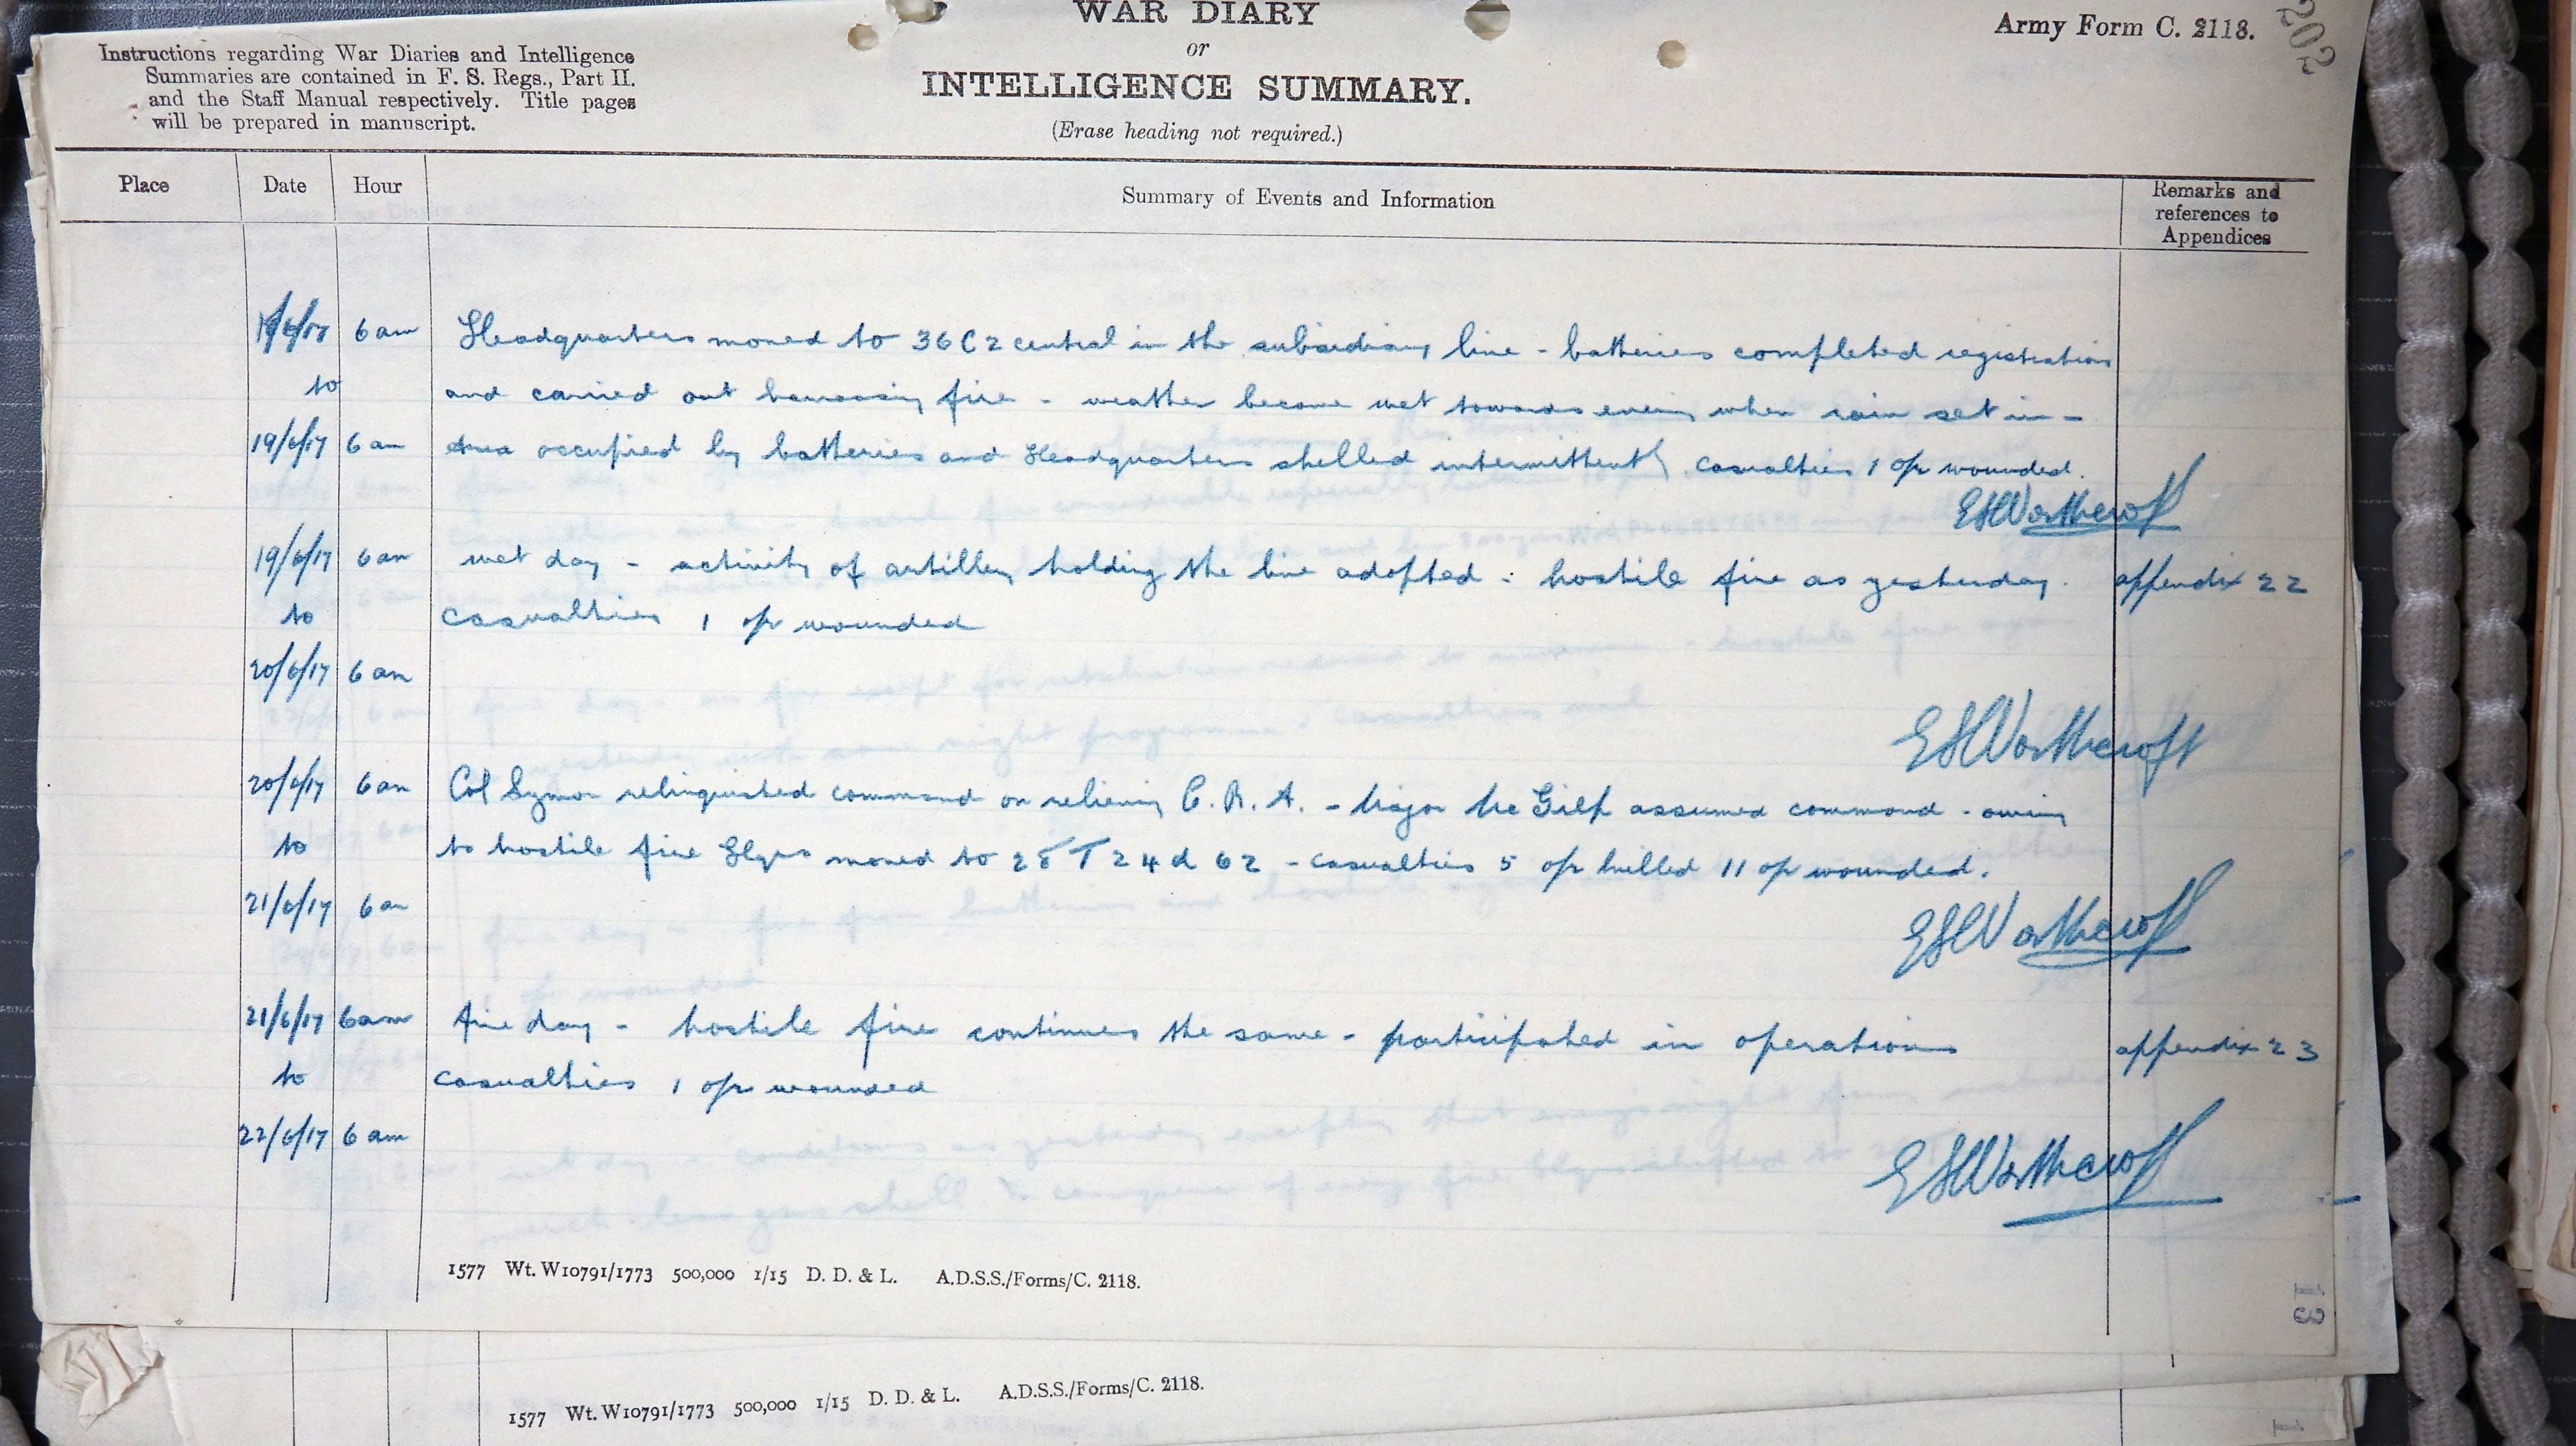 WAR DIARY
or
INTELLIGENCE SUMMARY.
(Erase heading not required.)
Army Form C. 2118.
202
Instructions regarding War Diaries and Intelligence
Summaries are contained in F. S. Regs., Part II.
and the Staff Manual respectively. Title pages
will be prepared in manuscript.
Place Date Hour Summary of Events and Information Remarks and references to Appendices
6 am Headquarters moved to 36 C 2 central in the subsidiary line - batteries completed registration
to and carried out harassing fire - weather became wet towards evening when rain set in -
19/6/17 6 am Area occupied by batteries and Headquarters shelled intermittently casualties 1 or wounded.
19/6/17 6 am wet day - activity of artillery holding the line adopted : hostile fire as yesterday. appendix 22
to casualties 1 or wounded
20/6/17 6 am
20/6/17 6 am Col Symon relinquished command on relieving C. R. A. - Major Mc Gilp assumed command - owing
to to hostile fire Hqrs moved to 28 T 24 d 62 - casualties 5 or killed 11 or wounded.
21/6/17 6 am
21/6/17 6 am fine day - hostile fire continues the same - participated in operations appendix 23
to casualties 1 or wounded
22/6/17 6 am
1577 Wt. W10791/1773 500,000 1/15 D. D. & L. A.D.S.S./Forms/C. 2118.
13
1577 Wt. W10791/1773 500,000 1/15 D. D. & L. A.D.S.S./Forms/C. 2118.